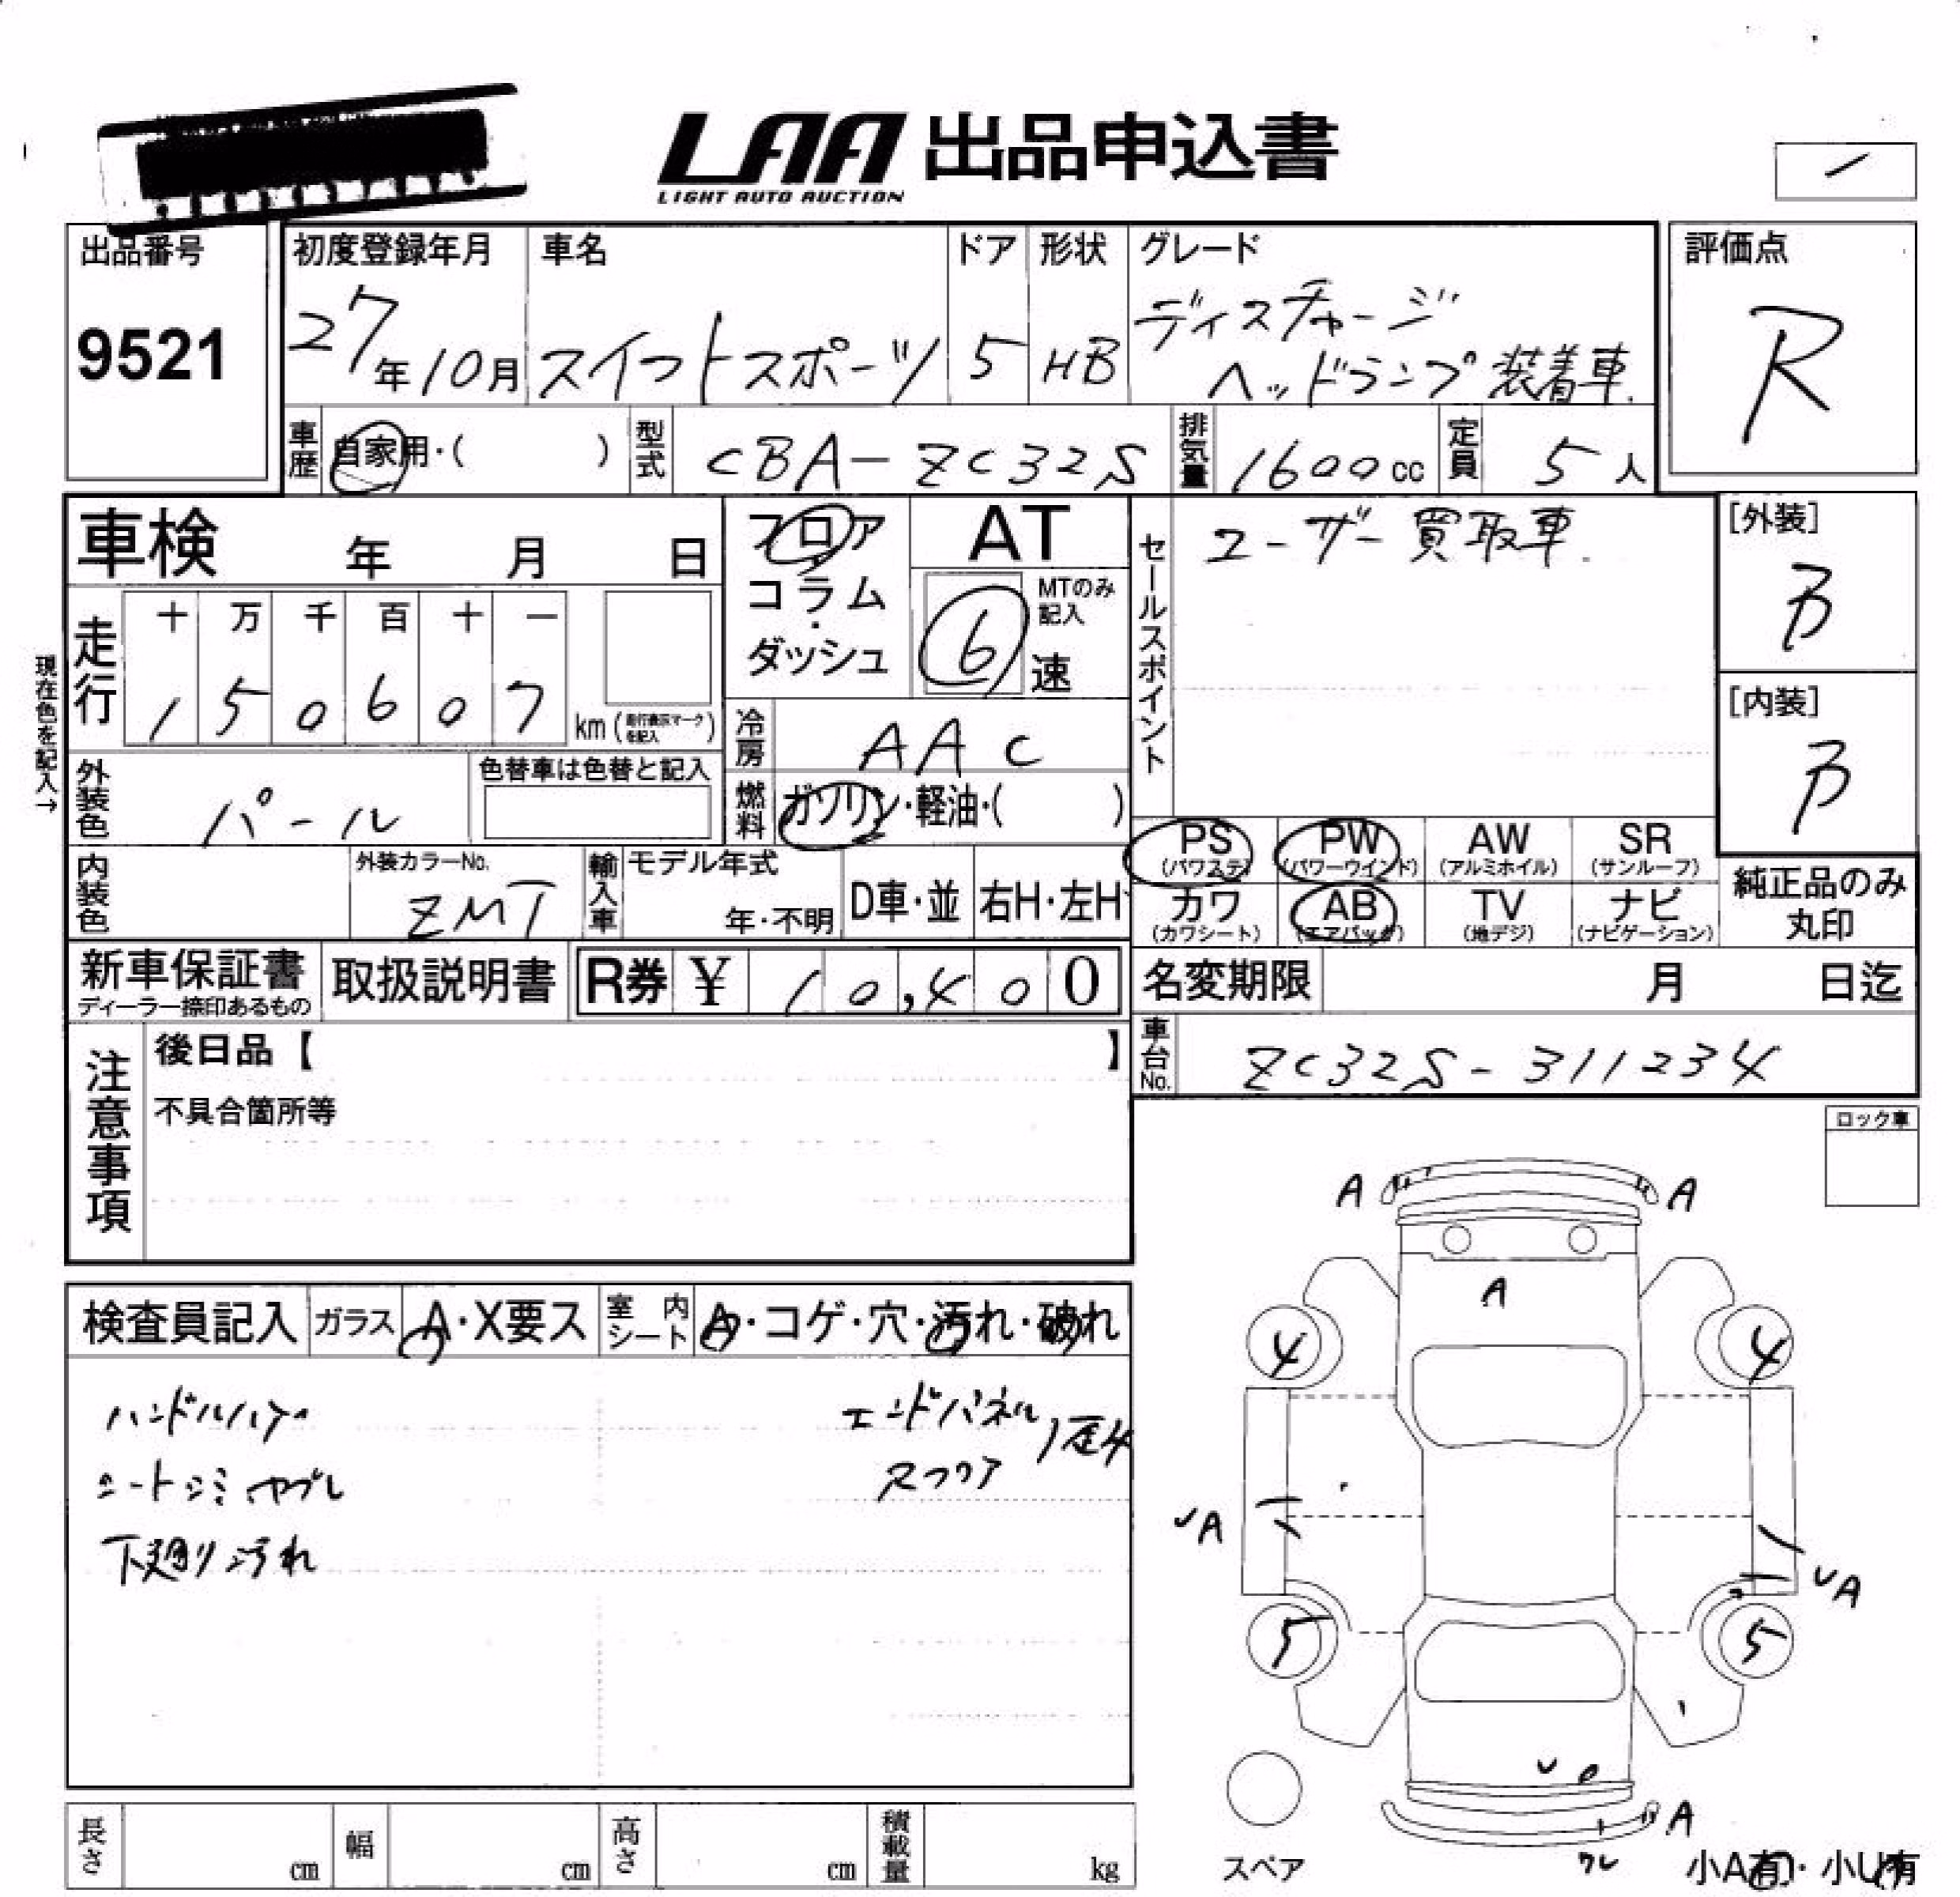 LAA 出品申込書
LIGHT AUTO AUCTION
出品番号
9521
初度登録年月
27年10月
車名
スイフトスポーツ
ドア
5
形状
HB
グレード
ディスチャージ
ヘッドランプ装着車
評価点
R
車歴
自家用・( )
型式
CBA-ZC32S
排気量
1600cc
定員
5人
車検 年 月 日
フロア
コラム
・
ダッシュ
AT
MTのみ
記入
6速
セールスポイント
ユーザー買取車
[外装]
B
[内装]
B
現在色を記入→
走行
十 万 千 百 十 一
1 5 0 6 0 7
km(走行表示マークを記入)
冷房
AAC
外装色
パール
色替車は色替と記入
燃料
ガソリン・軽油・( )
PS
(パワステ)
PW
(パワーウインド)
AW
(アルミホイル)
SR
(サンルーフ)
カワ
(カワシート)
AB
(エアバッグ)
TV
(地デジ)
ナビ
(ナビゲーション)
純正品のみ
丸印
内装色
外装カラーNo.
ZMT
輸入車
モデル年式
年・不明
D車・並
右H・左H
新車保証書
ディーラー捺印あるもの
取扱説明書
R券 ¥ 10,400
名変期限 月 日迄
車台No.
ZC32S-311234
注意事項
後日品【 】
不具合箇所等
ロック車
検査員記入
ガラス
A・X要ス
室内シート
A・コゲ・穴・汚れ・破れ
ハンドルハゲ
シートシミ ヤブレ
下廻り汚れ
エンドパネル
Rフロア
A
A
A
4
4
UA
UA
5
5
U
A
ワレ
スペア
小A有・小U有
長さ cm
幅 cm
高さ cm
積載量 kg